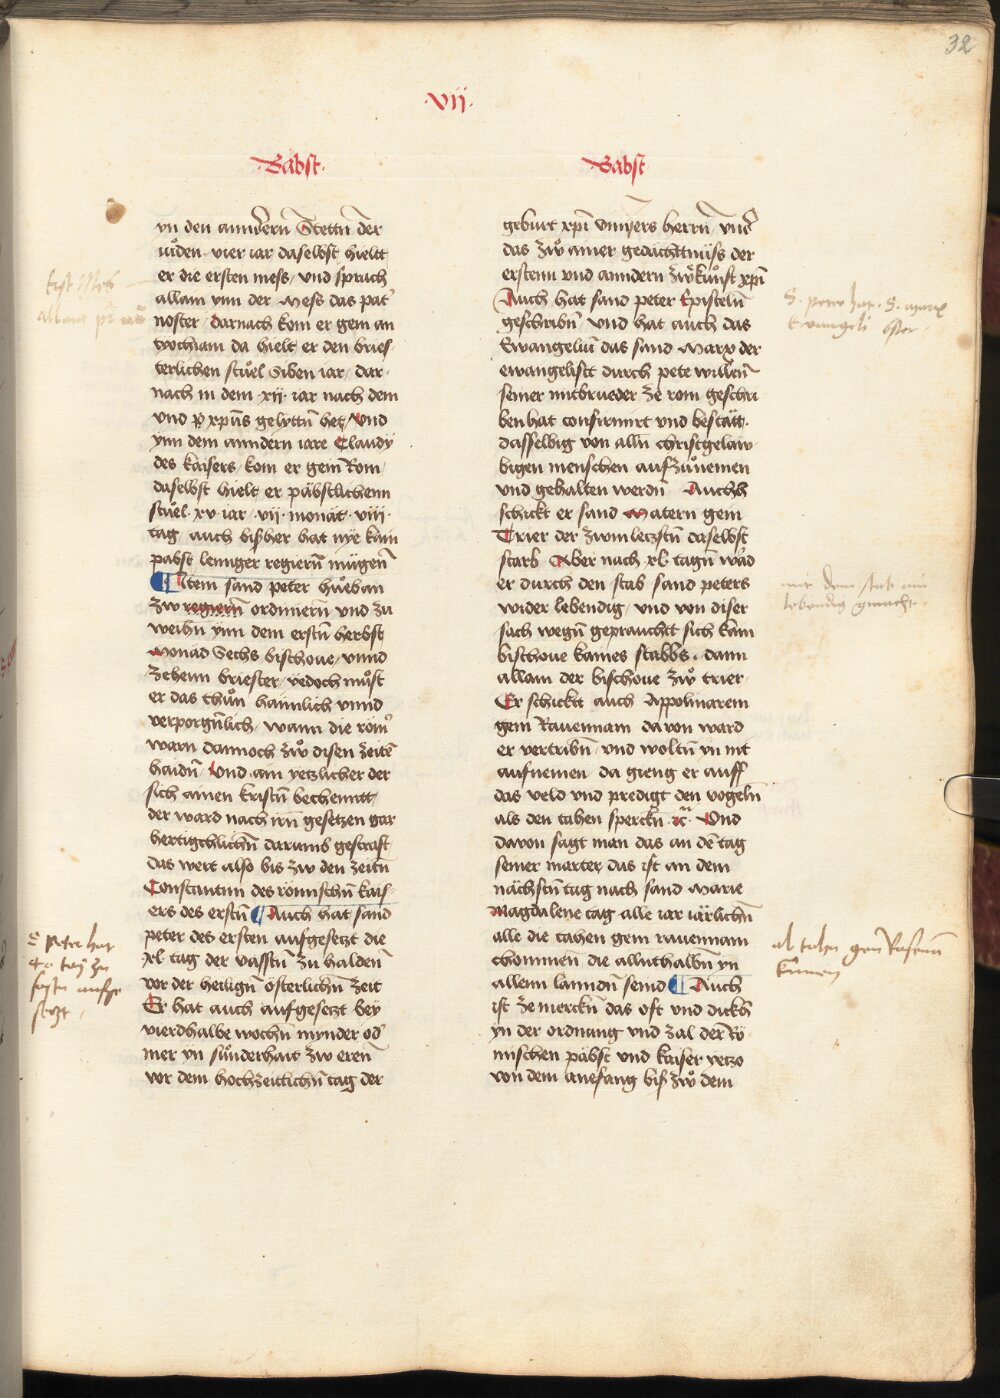 32
·vij·
·Babst·
yn den anndern Stettn̄ der
iuͦden· vier iar daselbst hieltt
er die ersten mess / vnd sprach
allain ynn der Mess das pat
noster / darnach kom er gem an
tyochiam da hielt er den bries-
terlichen stuͤel Siben iar / dar-
nach in dem ·xij· iar nach dem
vnd xp̄us gelyttn̄ het / Vnd
ynn dem anndern iare Claudy
des kaisers / kom er gem Rom /
daselbst hielt er päbstlichenn
stuͤel ·xv· iar ·vij· monät· viij·
tag / auch bisßher hat nye kain
pabst lennger regiern̄ mügen̄
¶ Item sand peter hueͦban
zw regiern̄ ordiniern̄ vnd zu
weihn̄ ynn dem erstn̄ herbst
Monäd Sechs bischoue / vnnd
Zehenn briester / yedoch muͦst
er das thuͦn haimlich vnnd
verporgn̄lich / wann die röm
warn dannoch zwͦ disen zeitē
haidn̄ / Vnd ain yetzlicher der
sich ainen kristn̄ bechenntt /
der ward nach irn̄ gesetzen gar
hertigchlichn̄ darumb gestraft
das wert also bis zw den zeitn̄
Constantini des römischn̄ kais-
ers des erstn̄ ¶ Auch hat sand
peter des ersten aufgesetzt die
xl tag der vasstn̄ zu haldeñ
vor der heiligñ österlichñ zeit
Er hat auch aufgesetzt bey
vierdhalbe wochn̄ mynder od
mer yn suͦnderhait zw eren̄
vor dem hochzeitlichn̄ tag der
Erst Mes
S peter hat
40 tag zu
fasten aufge
setzt
·Babst·
geburt xp̄i Vnnsers herrn̄ / vnd
das zwͦ ainer gedächttnüss der
erstenn vnd anndern zwͦkuͦnft xp̄i
Auch hat sand peter Episteln̄
geschribn̄ / vnd hat auch das
Ewangeliū das sand Marx der
ewangelistt durch pete willen̄
seiner mitbrueder ze rom geschri
ben hat confirmirt vnd bestätt·
dasselbig von alln̄ christgelaw-
bigen menschen aufzuͦnemen
vnd gehalten werdn̄ Auchh
schickt er sand Matern gem
Trier der zwm letzstn̄ daselbst
starb Aber nach xl tagn̄ wad
er durch den stab sand peters
wider lebendig / vnd von diser
sach wegn̄ gepraucht sich kain
bischoue kaines stabbs· dann
allain der bischoue zwͦ trier
Er schicktt auch Appolinarem
gem Rauennam da von ward
er vertribn̄ / vnd woltn̄ yn nit
aufnemen / da gieng er auff
das veld vnd predigt den vogeln̄
als den tahen sperckn̄ ·rc̄· Vnd
dauon sagt man das an dē tag
seiner marter / das ist an dem
nächstn̄ tag nach sand Marie
Magdalene tag alle iar iärlichn̄
alle die tahen gem rauennam
chommen die allnthalbn̄ yn
allenn lanndn̄ seind ¶ Auch
ist ze merckn̄ das oft vnd dickh
yn der ordnung vnd zal der Rö-
mischen päbst vnd kaiser yetzo
von dem Anefang bisß zwͦ dem
S. peter hat S. marx
Ewangeli
mit dem stab
lebendig gemacht
al tahen gen Rafenn
kumen